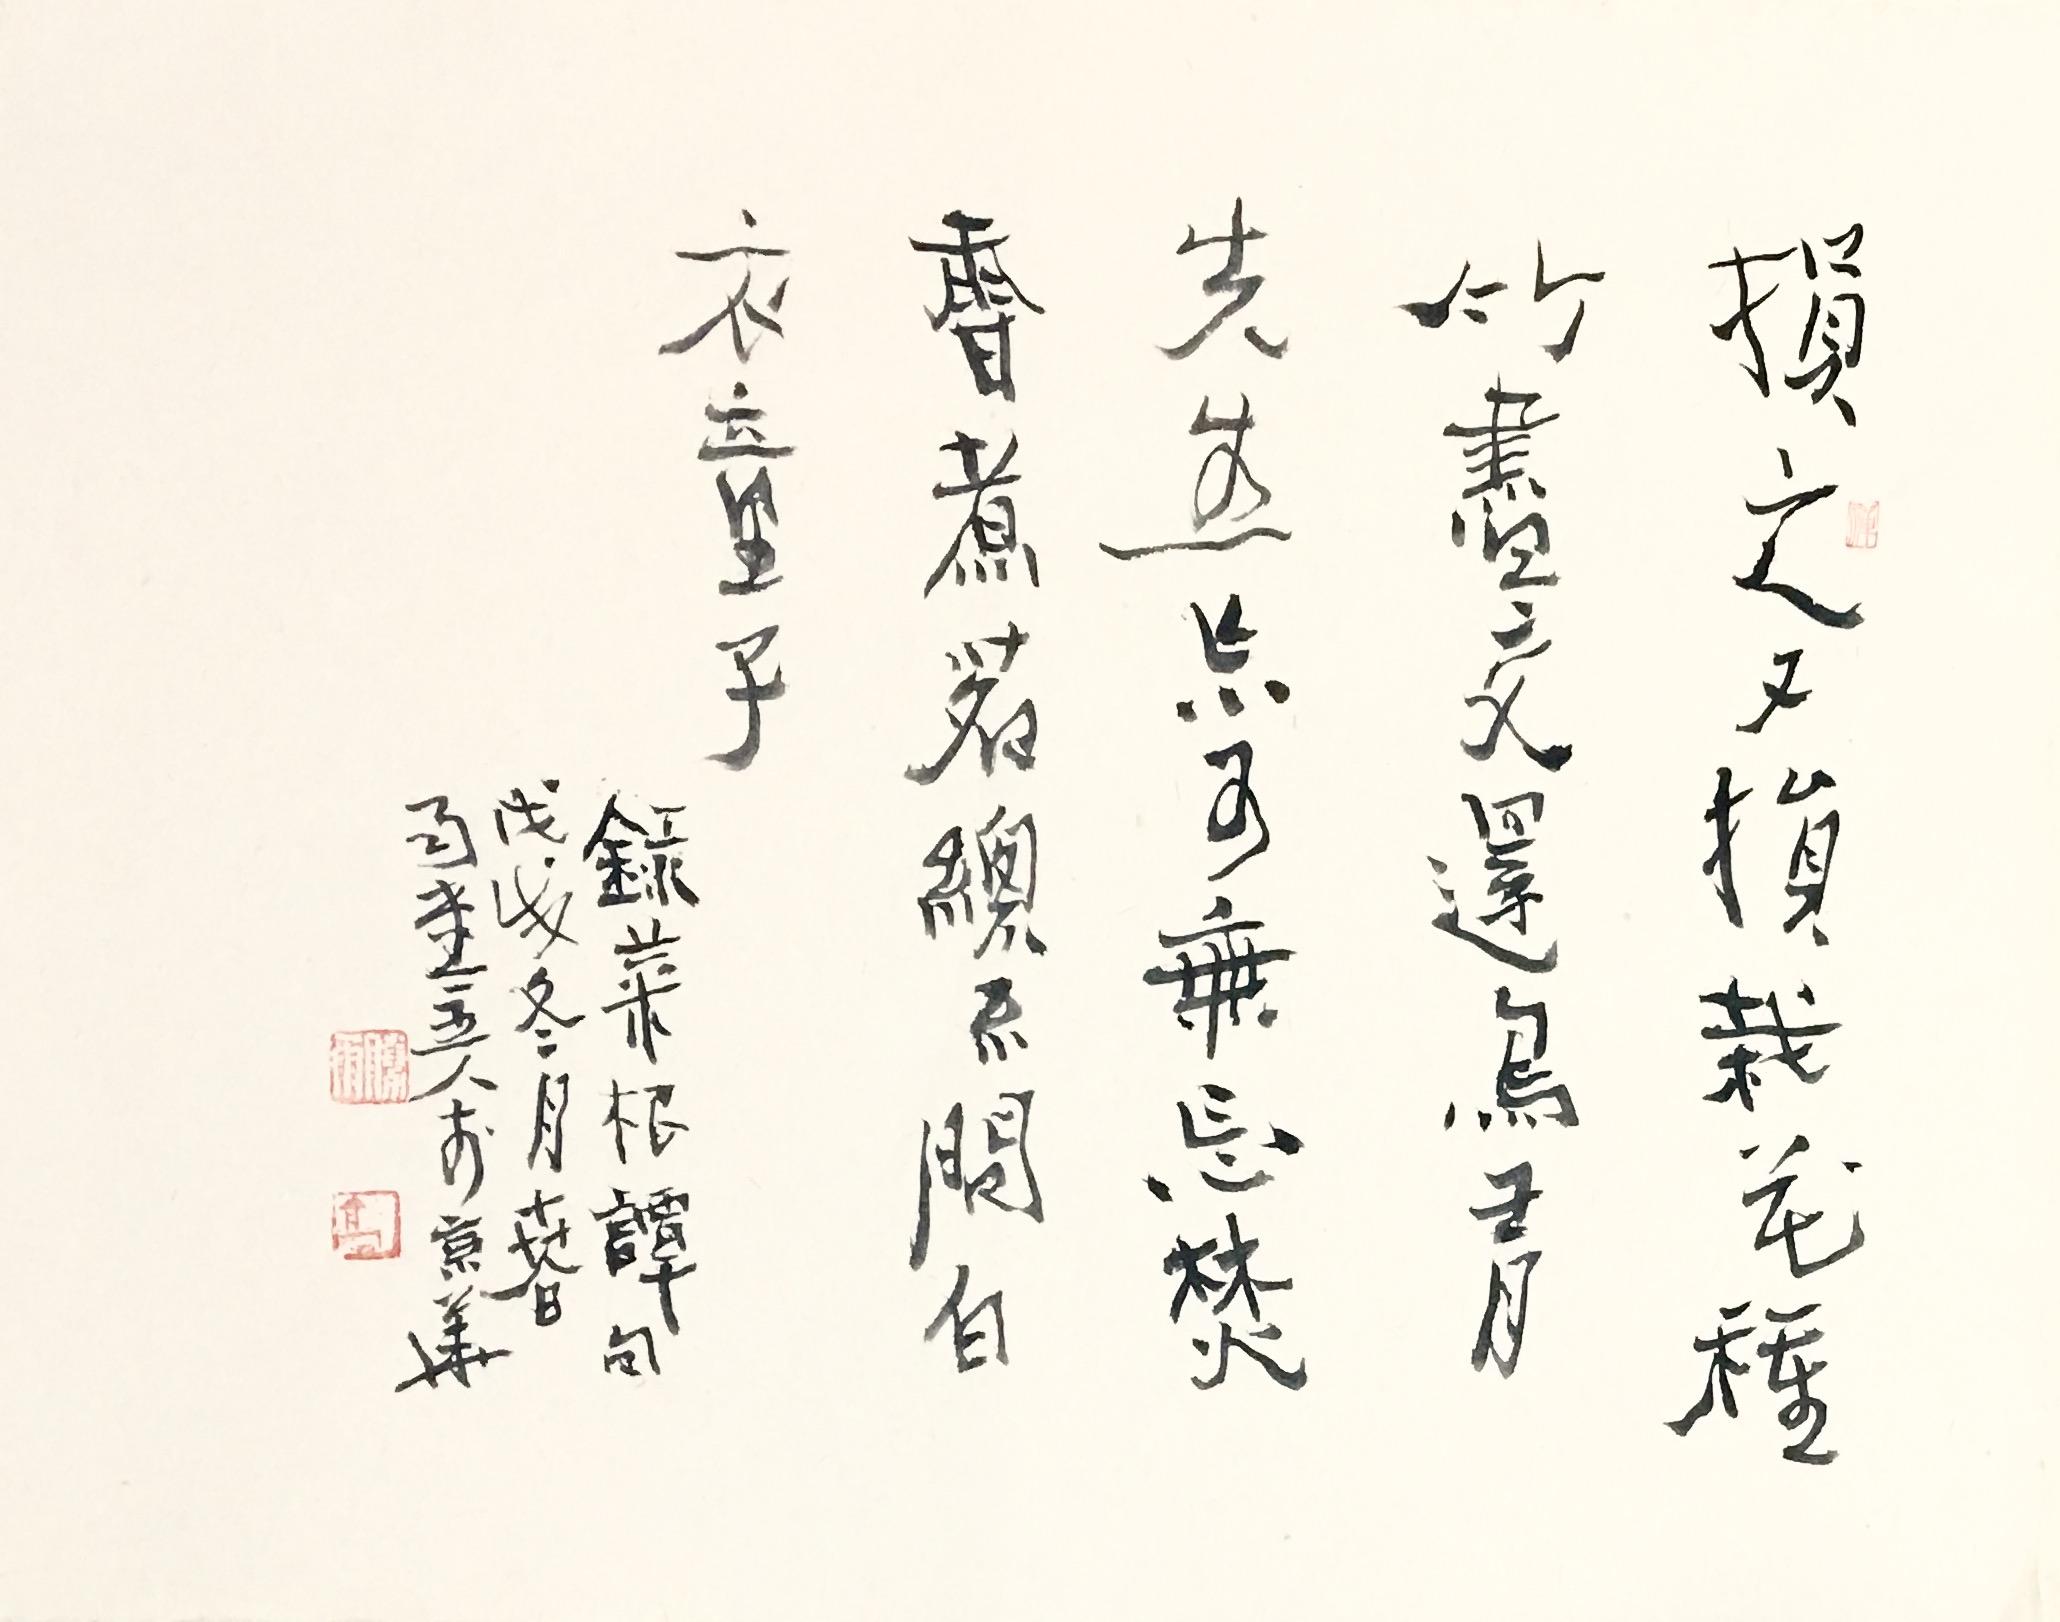 損之又損栽花種
竹盡交還烏有
先生忘可無忘焚
香煮茗總不問白
衣童子
錄菜根譚句
戊戌冬月
主人於京華